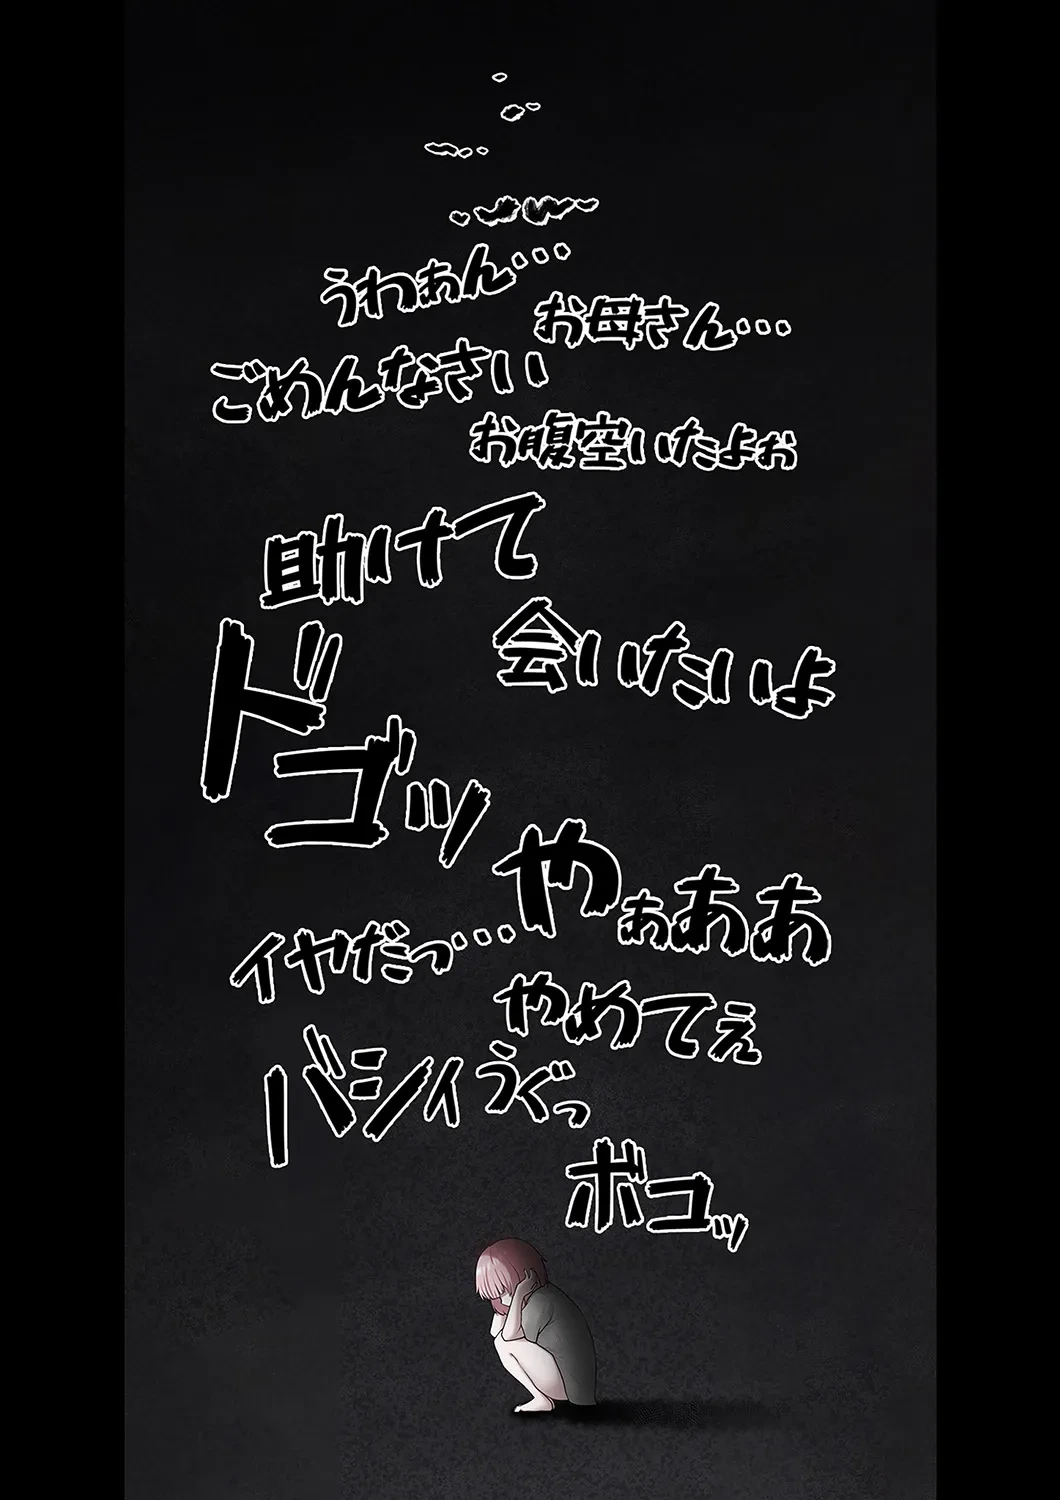 うわぁん…
お母さん…
ごめんなさい
お腹空いたよぉ
助けて
会いたいよ
ドゴッ
やぁああ
イヤだっ…
やめてぇ
バシィ
うぐっ
ボコッ